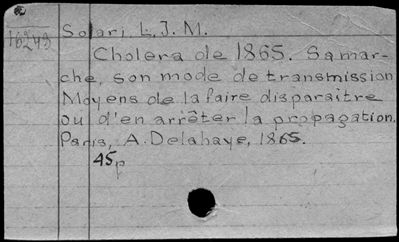 Solari, L. J. M.
16243
Cholera de 1865. Sa mar-
che, son mode de transmission
Moyens de la faire disparaitre
ou d'en arrêter la propagation.
Paris, A. Delahaye, 1865.
45p